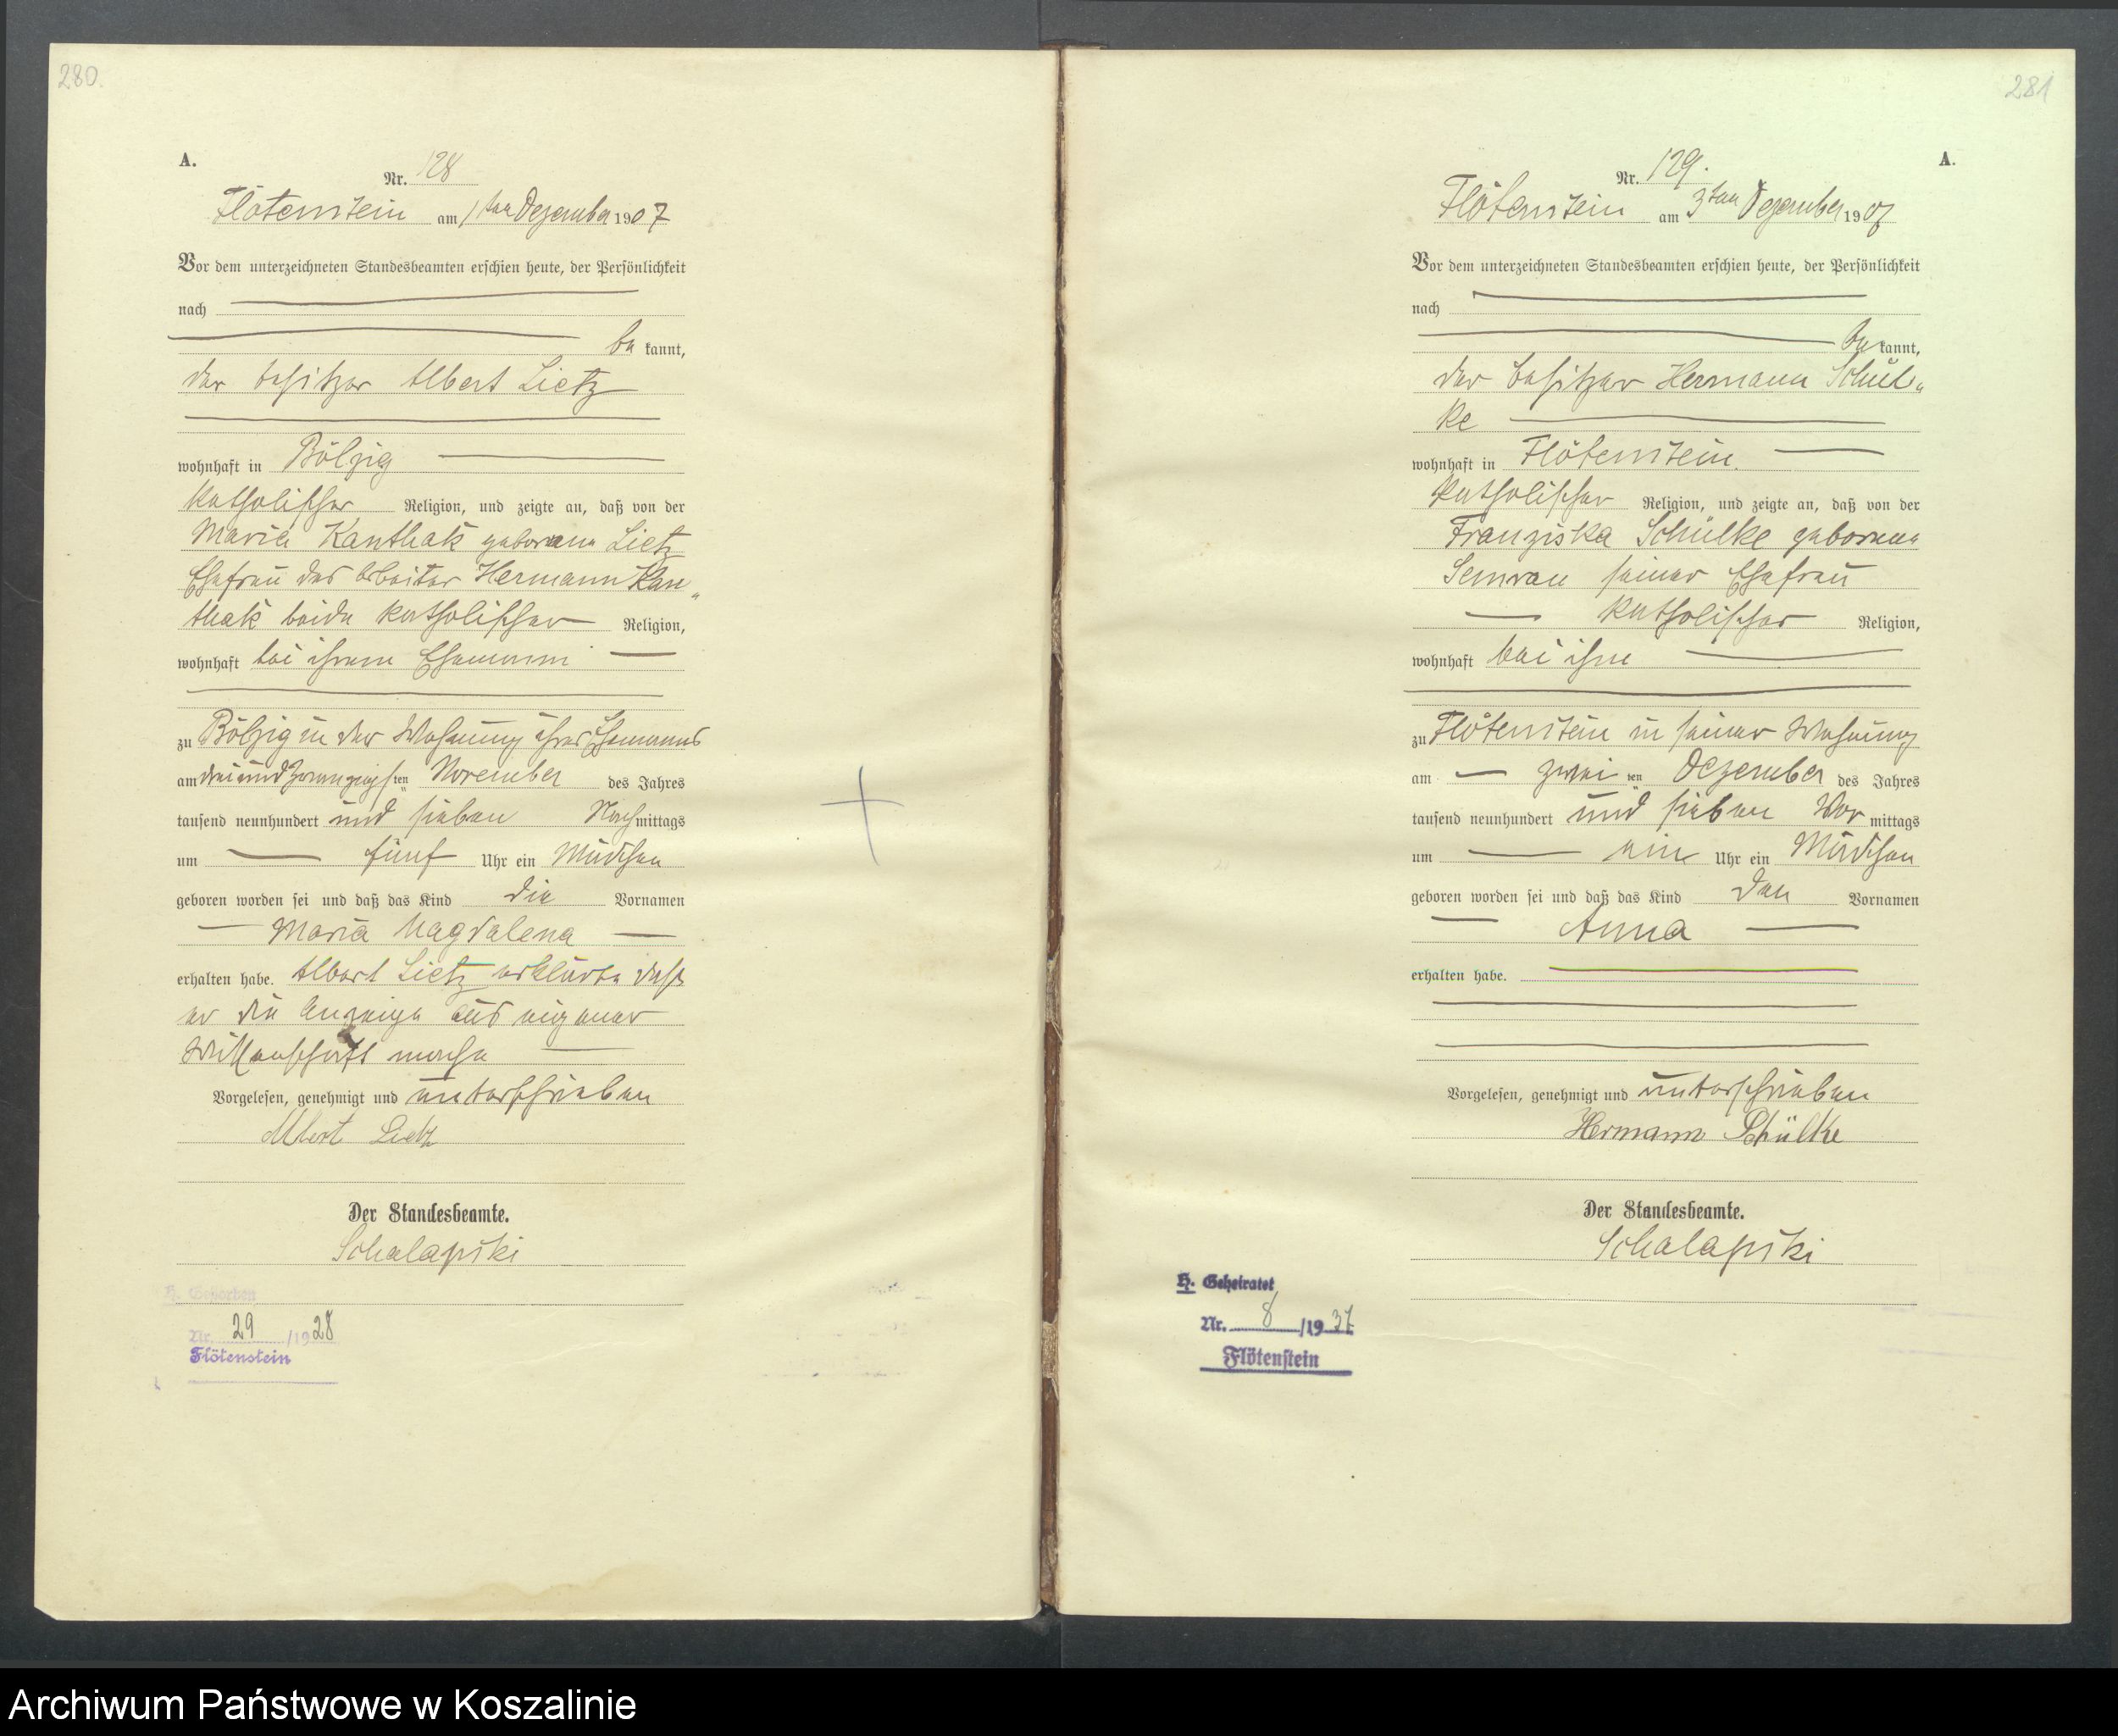 280.
A.
Nr. 128
Flötenstein am 1ten Dezember 1907
Vor dem unterzeichneten Standesbeamten erschien heute, der Persönlichkeit
nach
be kannt,
der Besitzer Albert Lietz
wohnhaft in Bölzig
katholischer Religion, und zeigte an, daß von der
Maria Kanthak geborene Lietz
Ehefrau des Arbeiter Hermann Kan„
thak beide katholischer Religion,
wohnhaft bei ihrem Ehemann
zu Bölzig in der Wohnung ihres Ehemanns
am dreiundzwanzigsten November des Jahres
tausend neunhundert und sieben Nachmittags
um fünf Uhr ein Mädchen
geboren worden sei und daß das Kind die Vornamen
Maria Magdalena
erhalten habe. Albert Lietz erklärte daß
er die Anzeige aus eigener
Wissenschaft mache
Vorgelesen, genehmigt und unterschrieben
Albert Lietz
Der Standesbeamte.
Schalapski
H. Gestorben
Nr. 29 /1928
Flötenstein
281
A.
Nr. 129.
Flötenstein am 3ten Dezember 1907
Vor dem unterzeichneten Standesbeamten erschien heute, der Persönlichkeit
nach
be kannt,
der Besitzer Hermann Schül„
ke
wohnhaft in Flötenstein.
katholischer Religion, und zeigte an, daß von der
Franziska Schülke geborene
Semrau seiner Ehefrau
katholischer Religion,
wohnhaft bei ihm
zu Flötenstein in seiner Wohnung
am zweiten Dezember des Jahres
tausend neunhundert und sieben Vor mittags
um ein Uhr ein Mädchen
geboren worden sei und daß das Kind den Vornamen
Anna
erhalten habe.
Vorgelesen, genehmigt und unterschrieben
Hermann Schülke
Der Standesbeamte.
Schalapski
H. Geheiratet
Nr. 8 /1937
Flötenstein
Archiwum Państwowe w Koszalinie